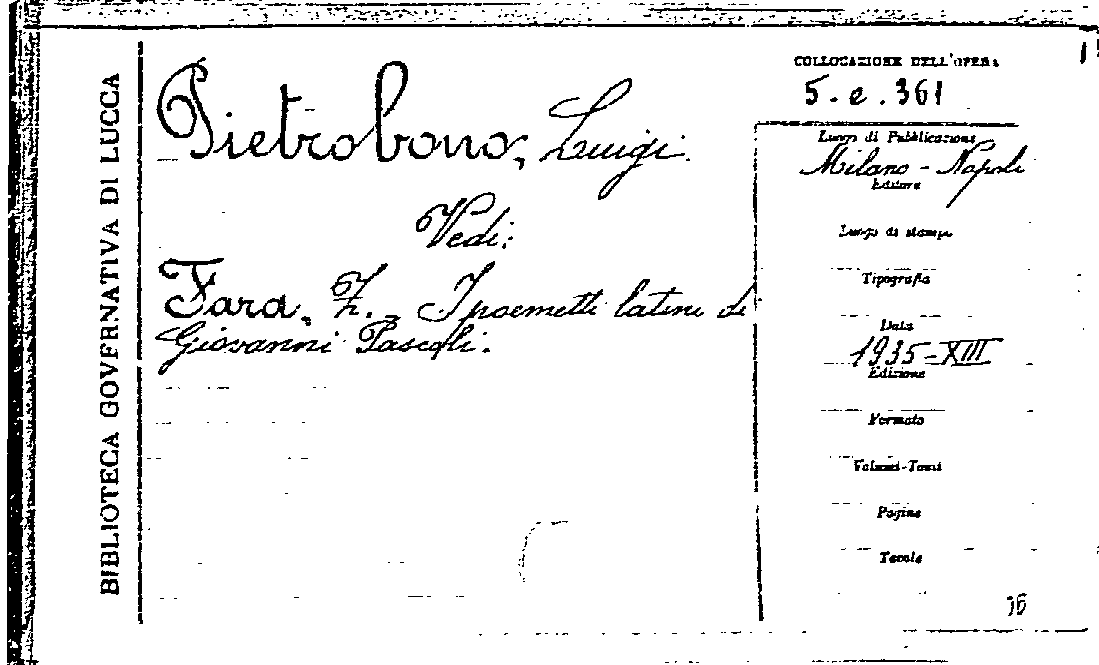 BIBLIOTECA GOVERNATIVA DI LUCCA
Pietrobono, Luigi.
Vedi:
Fara, Z. - I poemetti latini di
Giovanni Pascoli.
COLLOCAZIONE DELL'OPERA
5.e.361
Luogo di Pubblicazione
Milano - Napoli
Editore
Luogo di stampa
Tipografia
Data
1935-XIII
Edizione
Formato
Volumi-Tomi
Pagine
Tavole